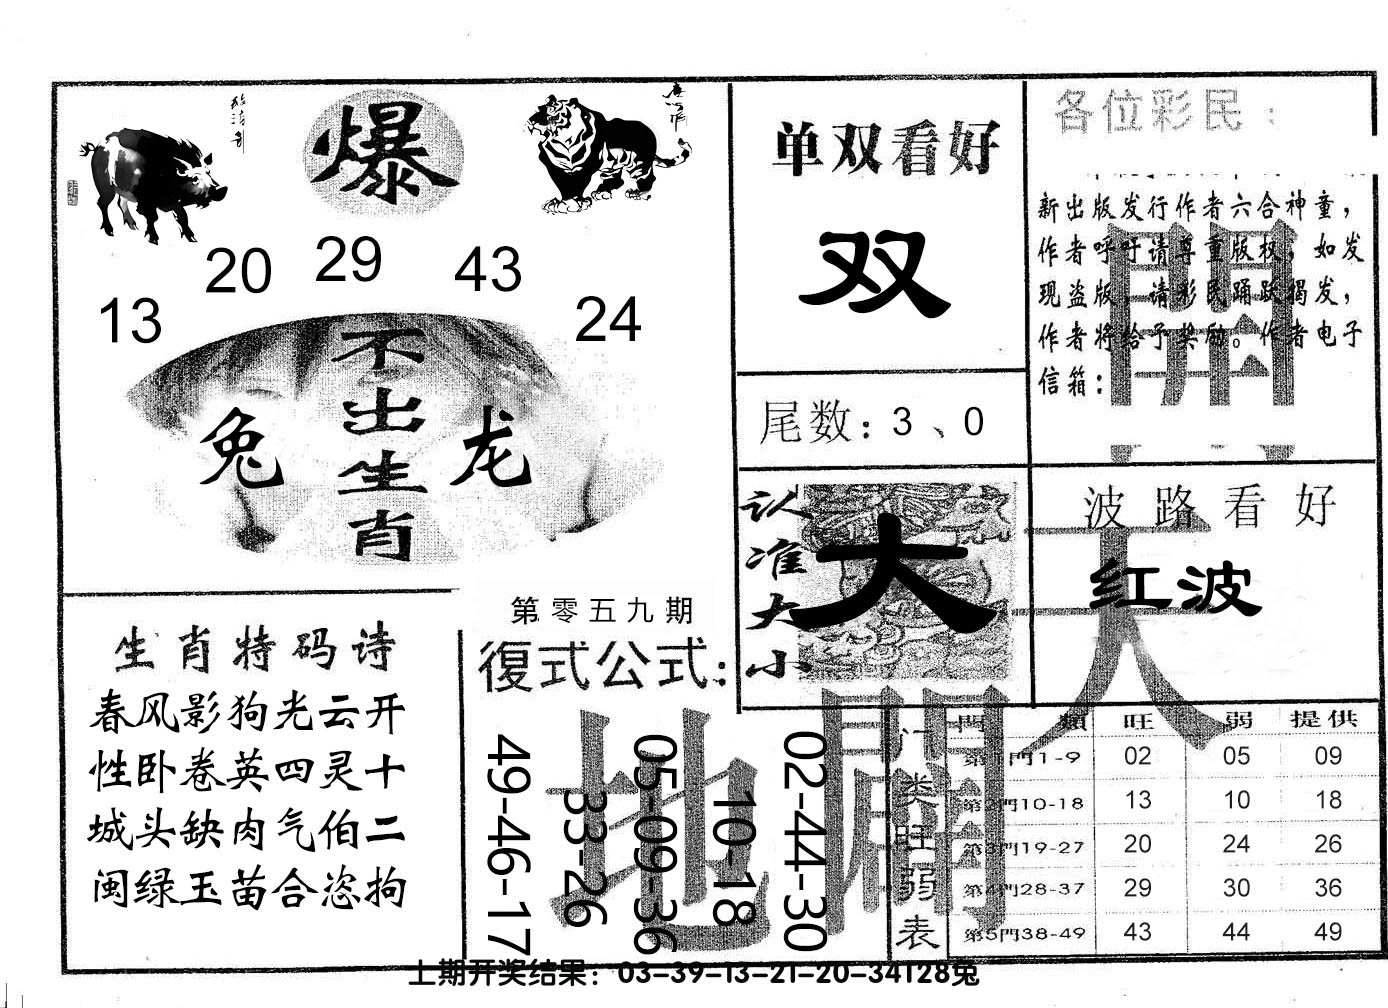 爆
20 29 43
13 24
不出生肖
兔 龙
生肖特码诗
春风影狗光云开
性卧卷英四灵十
城头缺肉气伯二
闽绿玉苗合恣拘
单双看好
双
尾数：3、0
认准大小
大
各位彩民：
新出版发行作者六合神童，
作者呼吁请尊重版权，如发
现盗版，请彩民踊跃揭发，
作者将给予奖励。作者电子
信箱：
波路看好
红波
天
開
地
開
第零五九期
復式公式：
49-46-17
33-26
05-09-36
10-18
02-44-30
门类旺弱表
門類 旺 弱 提供
第1門1-9 02 05 09
第2門10-18 13 10 18
第3門19-27 20 24 26
第4門28-37 29 30 36
第5門38-49 43 44 49
上期开奖结果：03-39-13-21-20-34T28兔